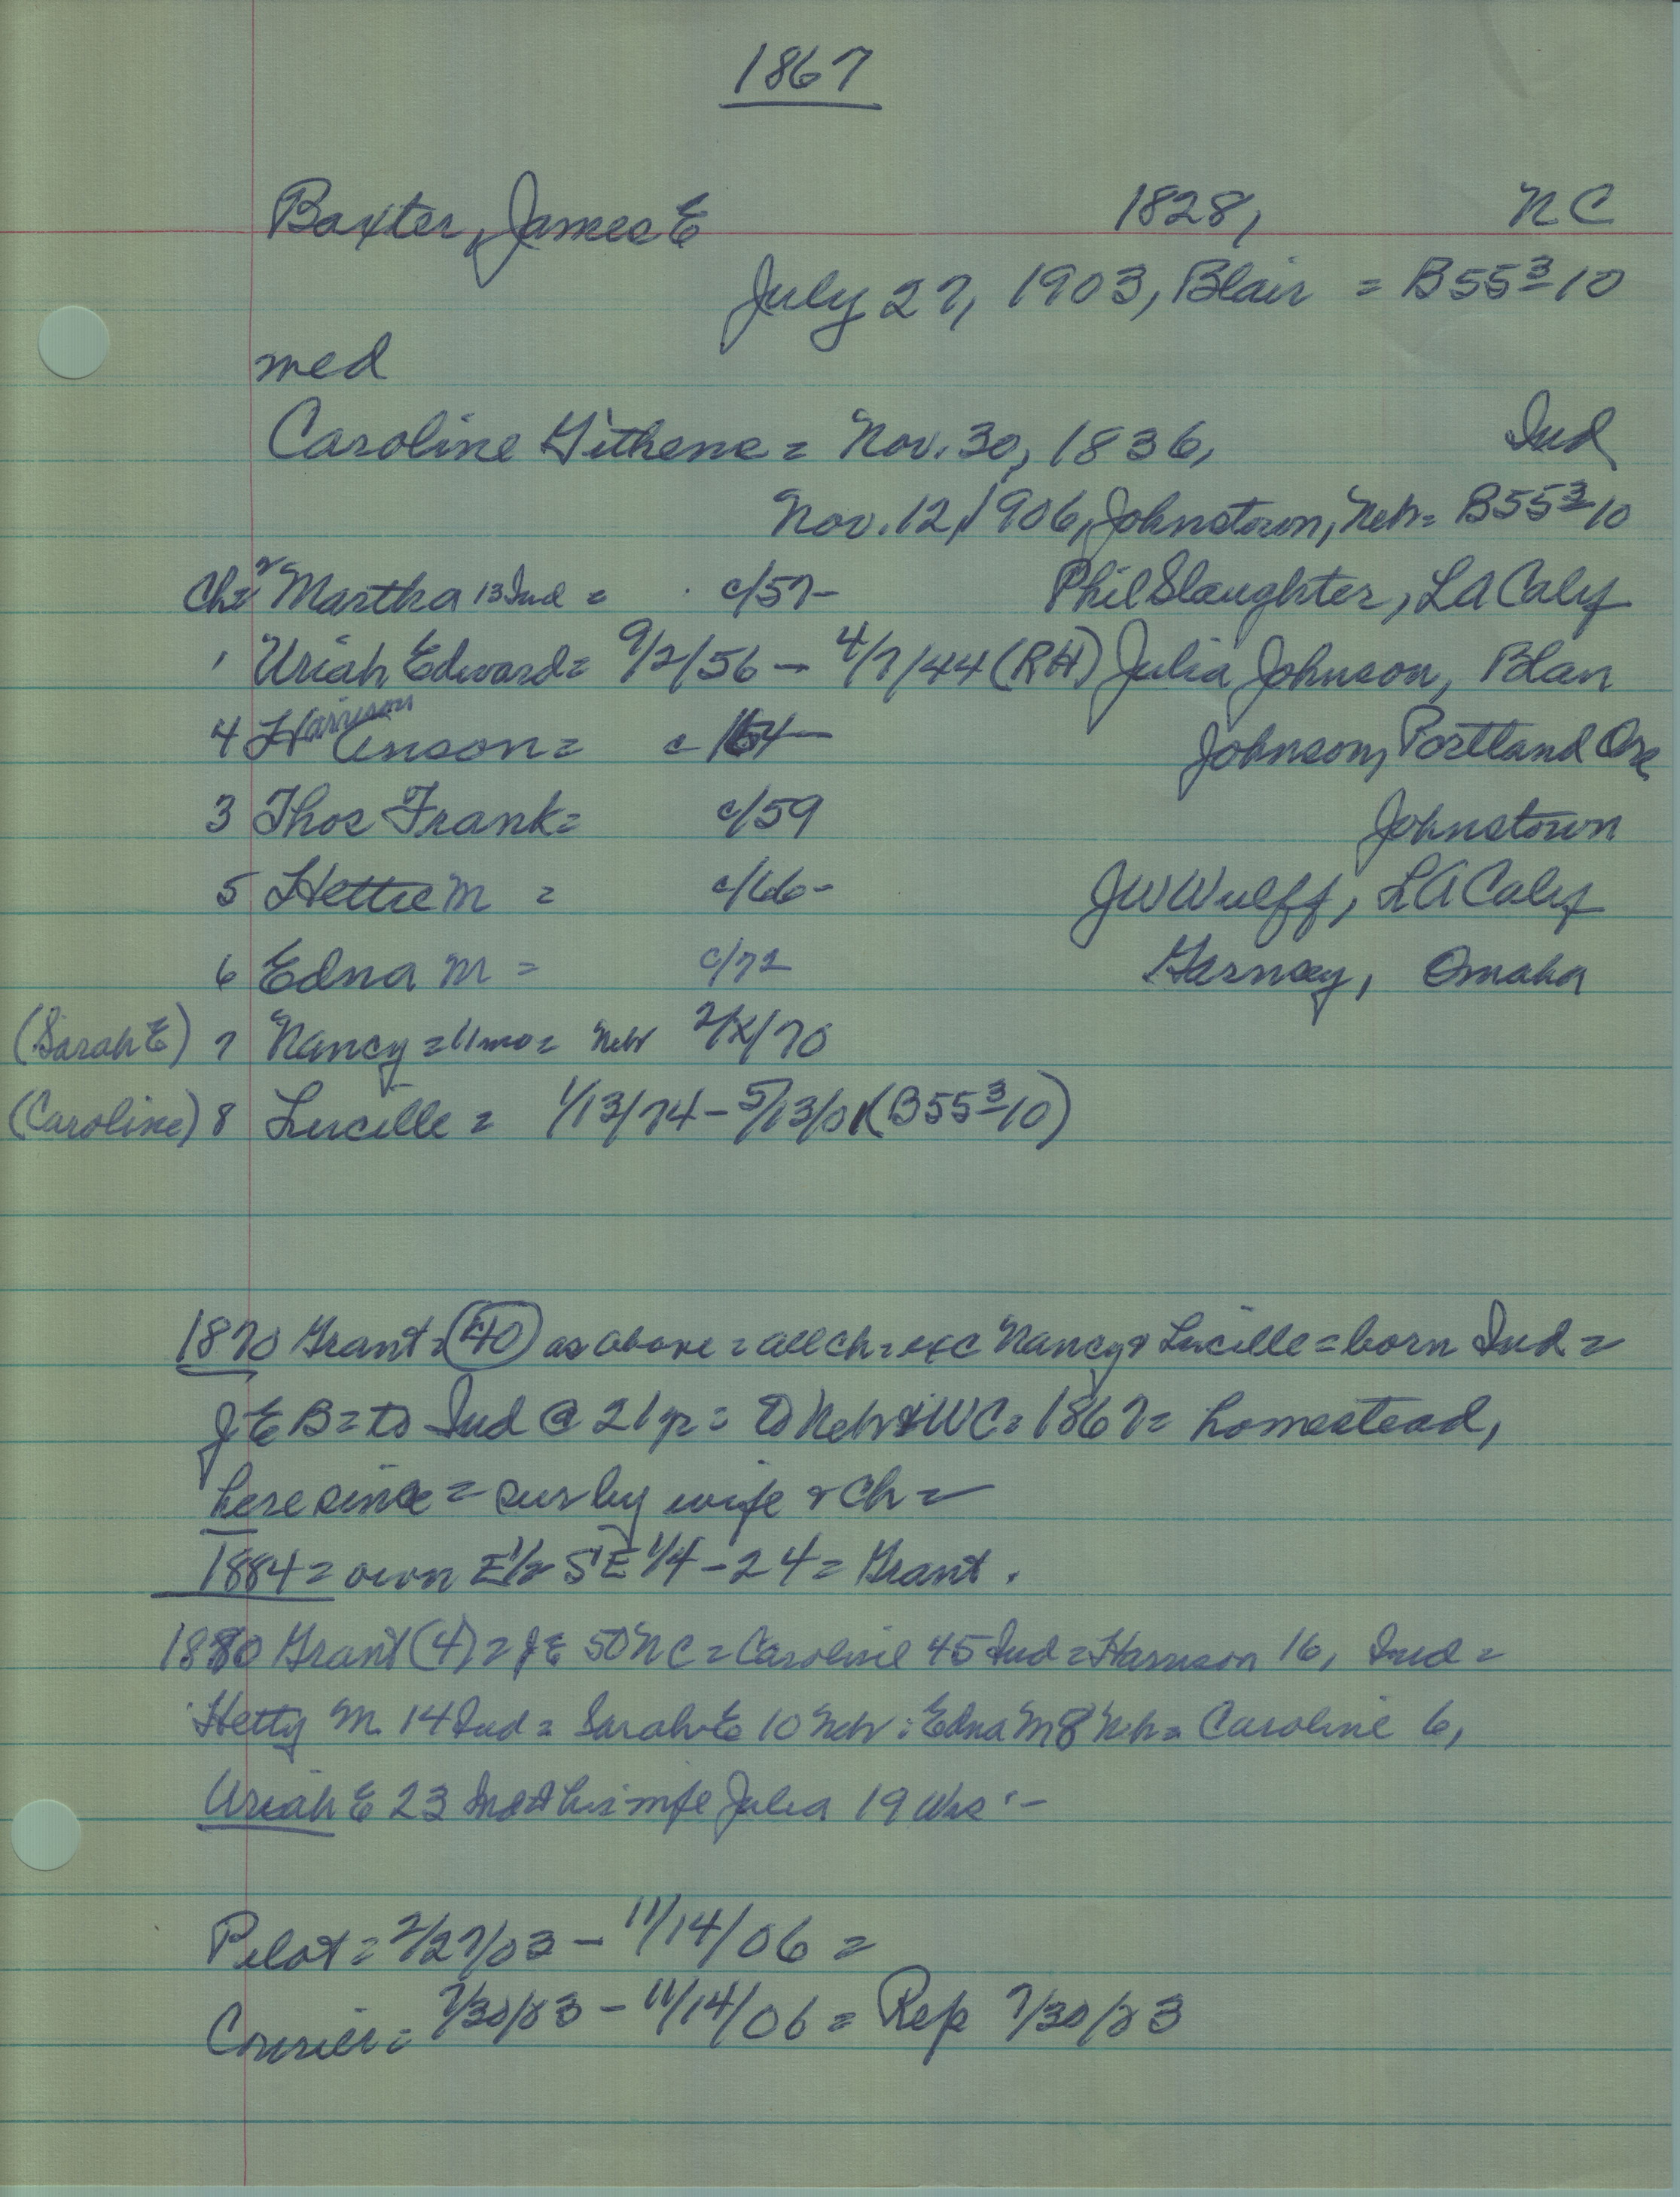 1867
Baxter, James E 1828, NC
July 27, 1903, Blair = B55 3/10
med
Caroline Githens = Nov. 30, 1836, Ind
Nov. 12, 1906, Johnstown, Neb = B55 3/10
Ch = 2 Martha 13 Ind = c/57- Phil Slaughter, LA Calif
1 Uriah Edward = 9/2/56 - 4/7/44 (RH) Julia Johnson, Blair
Harrison
4 H Anson = c/64- Johnson, Portland Ore
3 Thos Frank = c/59 Johnstown
5 Hettie M = c/66- JW Wulff, LA Calif
6 Edna M = c/72 Garnsey, Omaha
(Sarah E) 7 Nancy = 11mo = Neb 2/X/70
(Caroline) 8 Lucille = 1/13/74 - 5/13/01 (B55 3/10)
1870 Grant = (40) as above = all ch = exc Nancy & Lucille = born Ind =
JEB = to Ind @ 21 yr = to Neb & WC = 1867 = homestead,
here since = sur by wife & Ch =
1884 = own E 1/2 SE 1/4 - 24 = Grant.
1880 Grant (4) = JE 50 NC = Caroline 45 Ind = Harrison 16, Ind =
Hetty M. 14 Ind = Sarah E 10 Neb = Edna M 8 Neb = Caroline 6,
Uriah E 23 Ind & his wife Julia 19 Wis -
Pilot = 2/27/03 - 11/14/06 =
Courier = 7/30/03 - 11/14/06 = Rep 7/30/03